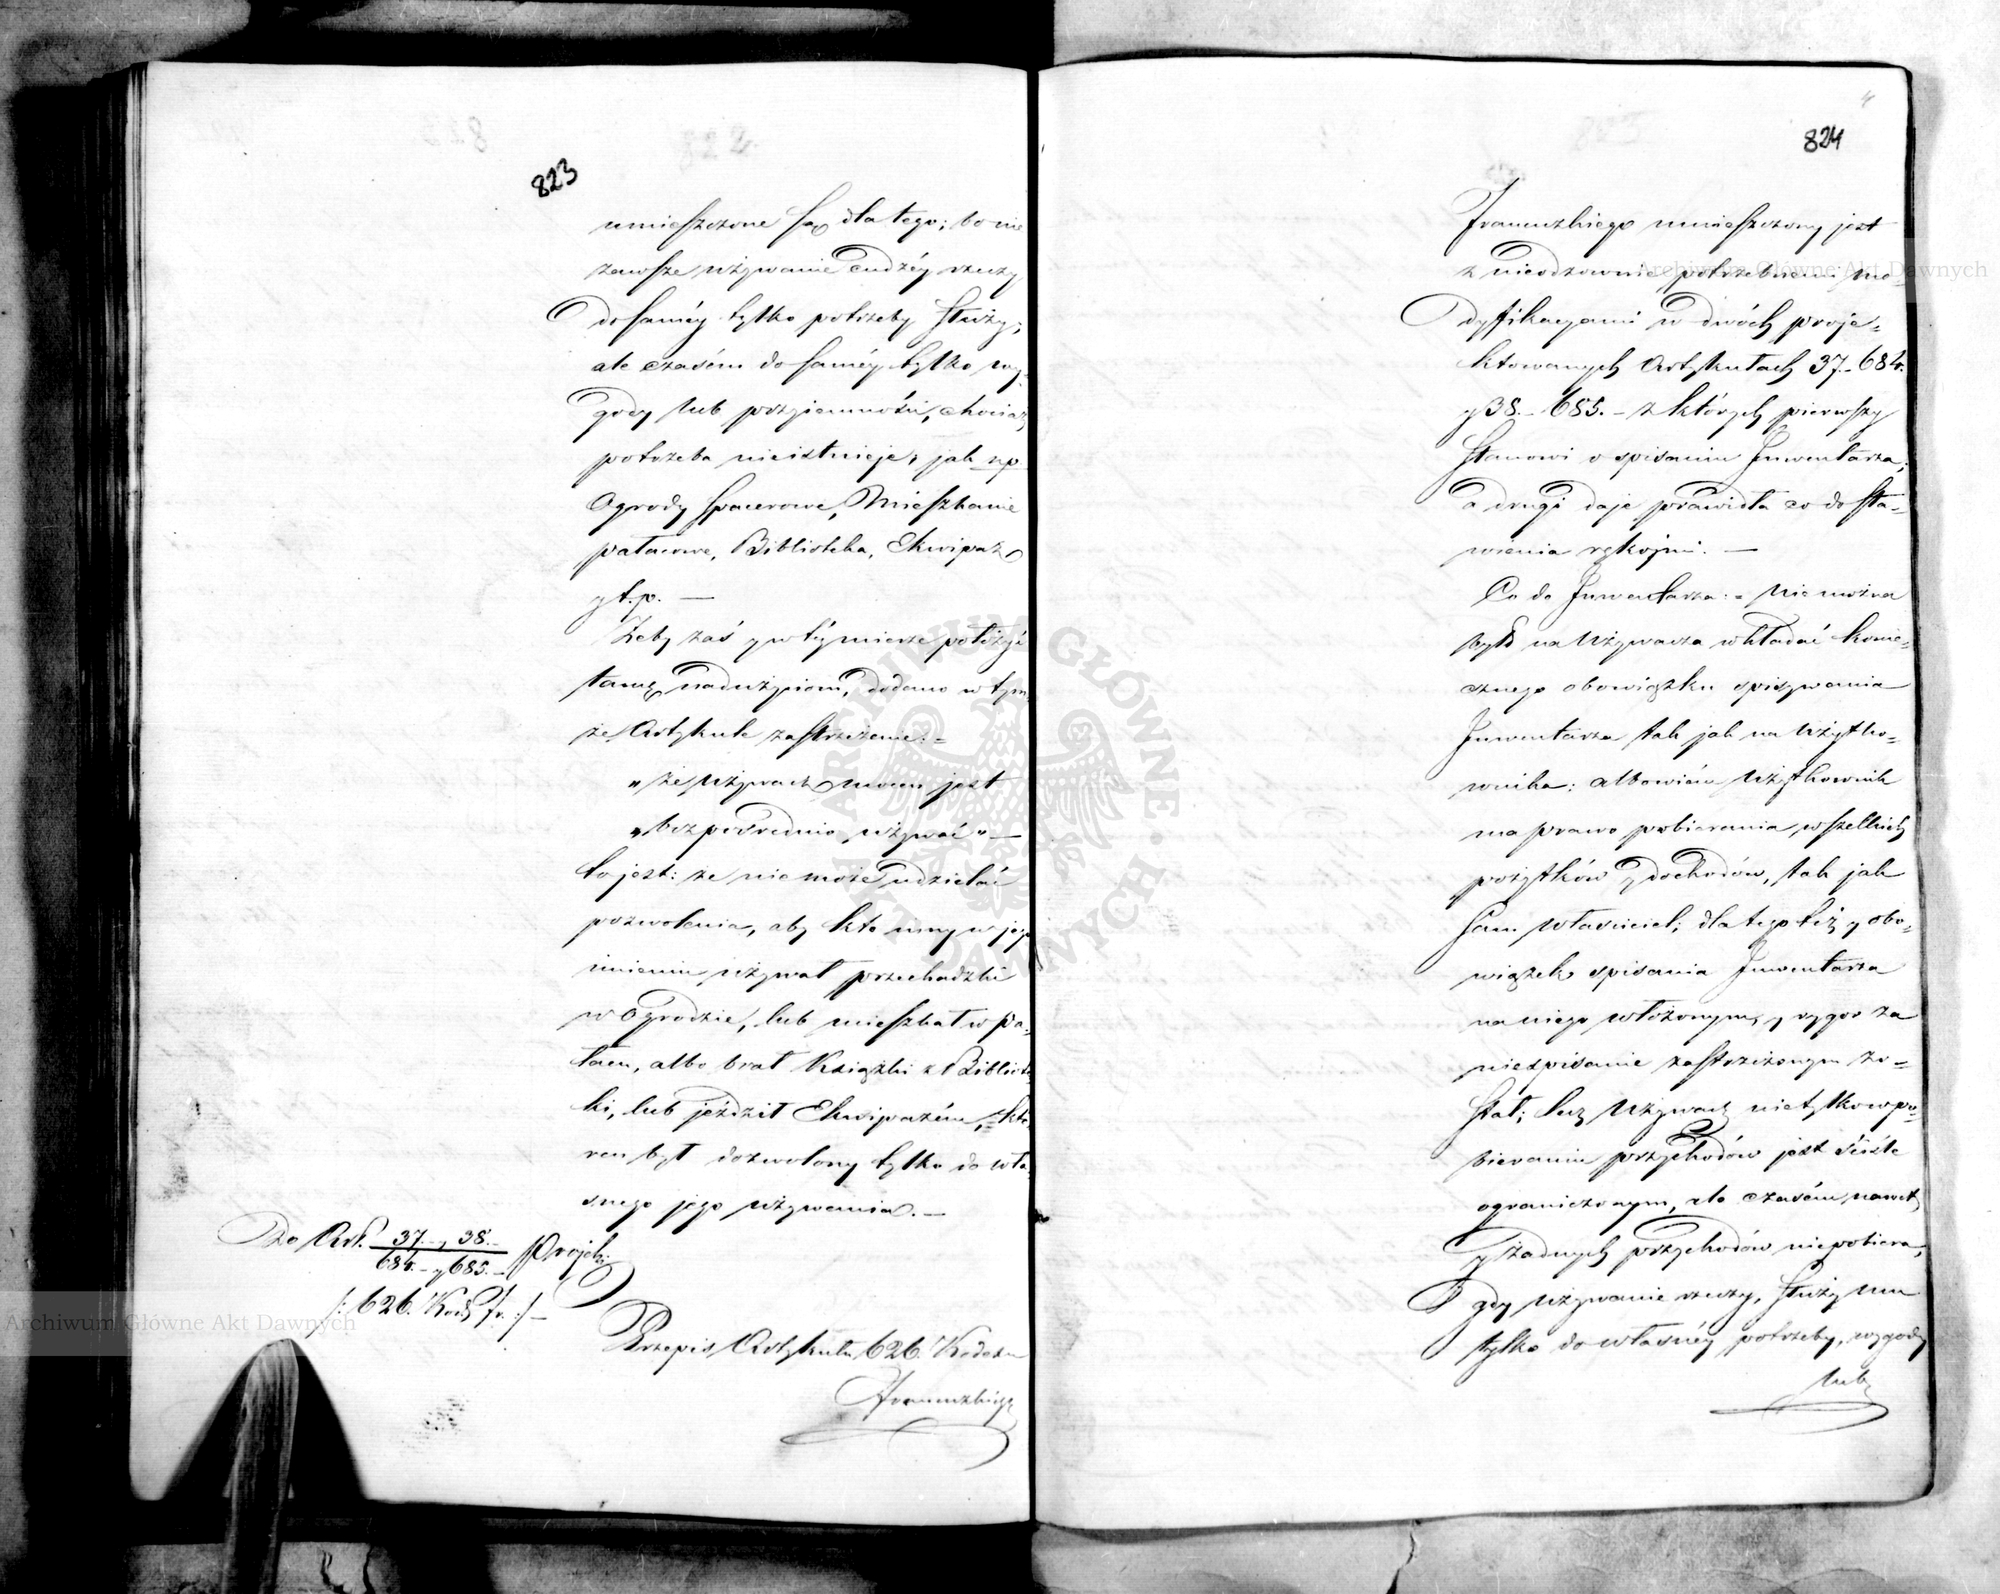 823
umieszczone są dla tego; bo nie
zawsze używanie cudzéy rzeczy
do saméy tylko potrzeby służy;
ale czasém do saméy tylko wy-
gody lub przyiemności, chociaż
potrzeba nieistnieje, jak np.
Ogrody spacerowe, Mieszkanie
pałacowe, Biblioteka, Ekwipaż
y t.p. —
Żeby zaś y w téy mierze położyć
tamę nadużyciom, dodano w tym-
że Artykule zastrzeżenie:=
„że Używacz mocen jest
„bezpośrednio używać" —
to jest: że nie może udzielać
pozwolenia, aby kto inny w jego
imieniu używał przechadzki
w Ogrodzie, lub mieszkał w Pa-
łacu, albo brał Książki z Bibliote-
ki, lub jeździł Ekwipażém, któ-
ren był dozwolony tylko do wła-
snego jego używania. —
Do Art. 37. y 38. Projek:
684. y 685.
/: 626. Kod. Fr. :/ —
Przepis Artykułu 626. Kodexu
Francuzkiego
824
Francuzkiego umieszczony jest
z nieodzownie potrzebnemi mo-
dyfikacyami w dwóch proje-
ktowanych Artykułach 37.- 684.
y 38.- 685. - z których pierwszy
stanowi o spisaniu Inwentarza;
a drugi daje prawidła co do sta-
wienia rękojmi. —
Co do Inwentarza:= Nie można
było na Używacza wkładać konie-
cznego obowiązku spisywania
Inwentarza tak jak na Użytko-
wnika: albowiém Użytkownik
ma prawo pobierania wszelkich
pożytków y dochodów, tak jak
sam właściciel; dla tego też y obo-
wiązek spisania Inwentarza
na niego włożonym, y rygor za
niespisanie zastrzeżonym zo-
stał; lecz Używacz nietylko w po-
bieraniu przychodów jest ściśle
ograniczonym, ale czasém nawet
y żadnych przychodów niepobiera,
gdy używanie rzeczy, służy mu
tylko do własnéy potrzeby, wygody
lub
Archiwum Główne Akt Dawnych
Archiwum Główne Akt Dawnych
ARCHIWUM GŁÓWNE AKT DAWNYCH